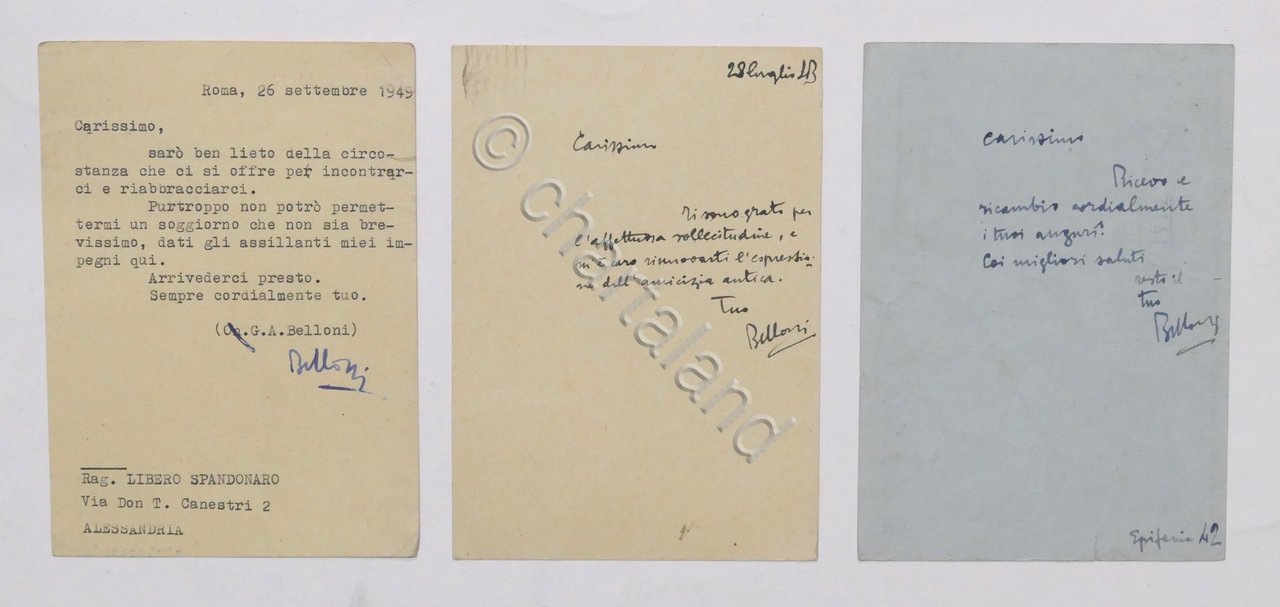 Roma, 26 settembre 1949
Carissimo,
sarò ben lieto della circo-
stanza che ci si offre per incontrar-
ci e riabbracciarci.
Purtroppo non potrò permet-
termi un soggiorno che non sia bre-
vissimo, dati gli assillanti miei im-
pegni qui.
Arrivederci presto.
Sempre cordialmente tuo.
(On.G.A.Belloni)
Belloni
Rag. LIBERO SPANDONARO
Via Don T. Canestri 2
ALESSANDRIA
28 luglio 43
Carissimo
ti sono grato per
l'affettuosa sollecitudine, e
m'è caro rinnovarti l'espressio-
ne dell'amicizia antica.
Tuo
Belloni
carissimo
Ricevo e
ricambio cordialmente
i tuoi auguri!
Coi migliori saluti
resto il
tuo
Belloni
Epifania 42
© chartaland